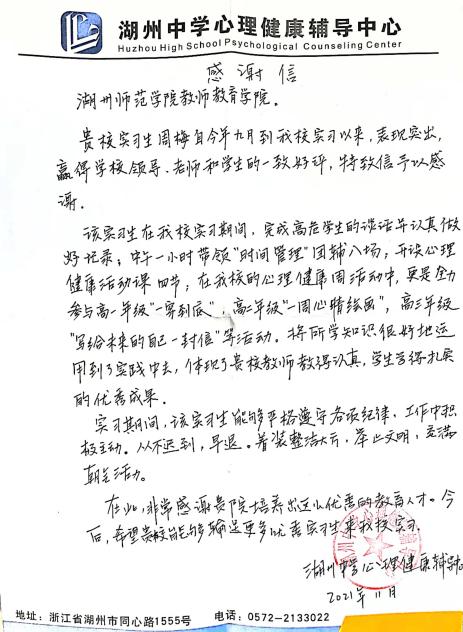 湖州中学心理健康辅导中心
Huzhou High School Psychological Counseling Center
感谢信
湖州师范学院教师教育学院.
贵校实习生周梅自今年九月到我校实习以来,表现突出,
赢得学校领导、老师和学生的一致好评,特致信予以感
谢.
该实习生在我校实习期间,完成高危学生的谈话并认真做
好记录;中午一小时带领"时间管理"团辅八场;开设心理
健康活动课四节;在我校的心理健康周活动中,更是全力
参与高一年级"一寄到底",高二年级"一周心情绘画",高三年级
"写给未来的自己一封信"等活动.将所学知识很好地运
用到了实践中去,体现了贵校教师教得认真,学生学得扎实
的优秀成果.
实习期间,该实习生能够严格遵守各项纪律、工作中积
极主动.从不迟到,早退.着装整洁大方,举止文明,充满
朝气活力.
在此,非常感谢贵院培养出这么优秀的教育人才.今
后,希望贵校能够输送更多优秀实习生来我校实习.
湖州中学心理健康辅导中心
2021年11月
地址:浙江省湖州市同心路1555号 电话:0572-2133022